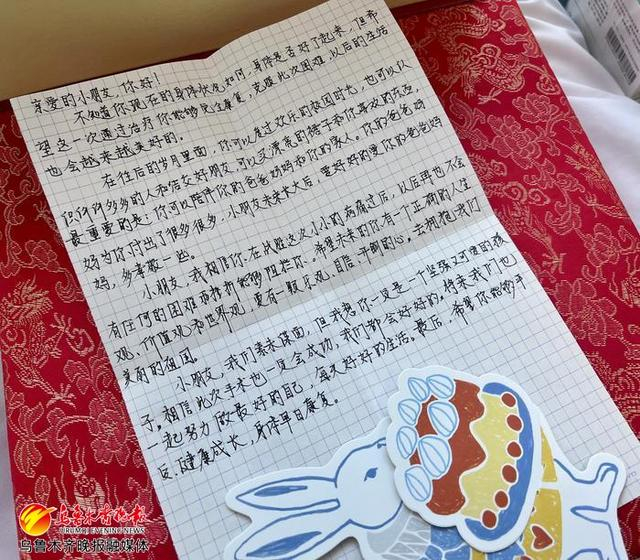 亲爱的小朋友，你好！
不知道你现在的身体状况如何，身体是否好了起来，但希
望这一次通过治疗你能够完全康复，克服此次困难，以后的生活
也会越来越美好的。
在往后的岁月里面，你可以度过欢乐的校园时光，也可以认
识许许多多的人和结交好朋友，可以买漂亮的裙子和你喜欢的东西，
最重要的是：你可以陪伴你的爸爸妈妈和你的家人。你的爸爸妈
妈为你付出了很多很多，小朋友未来长大后，要好好的爱你的爸爸妈
妈，多孝敬一些。
小朋友，我相信你在战胜这次小小的病痛过后，以后再也不会
有任何的困难而挫折能够阻拦你。希望未来的你有一个正确的人生
观、价值观和世界观，更有一颗乐观、自信、开朗的心。去拥抱我们
美丽的祖国。
小朋友，我们素未谋面，但我想你一定是一个坚强又可爱的孩
子。相信此次手术也一定会成功，我们都会好好的。将来我们也
一起努力做最好的自己，每天好好的生活。最后，希望你能够平
安，健康成长，身体早日康复。
乌鲁木齐晚报
URUMQI EVENING NEWS
乌鲁木齐晚报融媒体